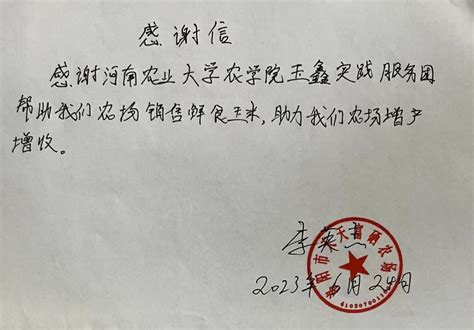 感谢信
感谢河南农业大学农学院玉鑫实践服务团
帮助我们农场销售鲜食玉米,助力我们农场增产
增收。
李英杰
2023年6月24日